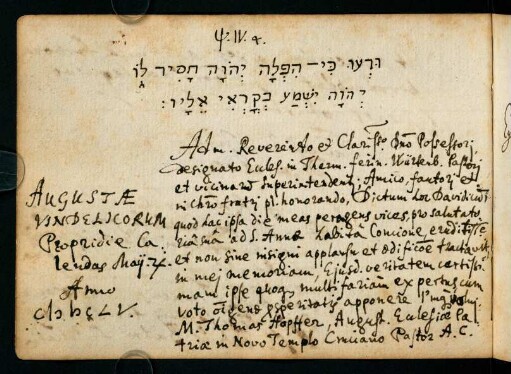 ψ. IV. 4.
וּרְעוּ כִּי־הִפְלָה יְהֹוָה חָסִיד לוֹ
יְהֹוָה יִשְׁמַע בְּקָרְאִי אֵלָיו׃
Adm. Reverendo et Clariss. Dno Possessori,
designato Eccles. in Therm. ferin. Würtenb. Pastori
et vicinarum Superintendenti, Amico, fautori et
in Chro fratri pl. honorando, Dictum hoc Davidicum
quod hac ipsa die meas peragens vices, pro salutato
ad S. Annæ habita Concione, erudite
et non sine insigni applausu et ædificatione
in mei memoriam, Ejusd. veritatem certissi-
mam ipse quoq multifariam expertus cum
voto apponere
M. Thomas Hopffer, August. Ecclesiæ Pa-
triæ in Novo Templo Pastor A. C.
AUGUSTÆ
VINDELICORUM
Propridie Ca-
lendas Maij
Anno